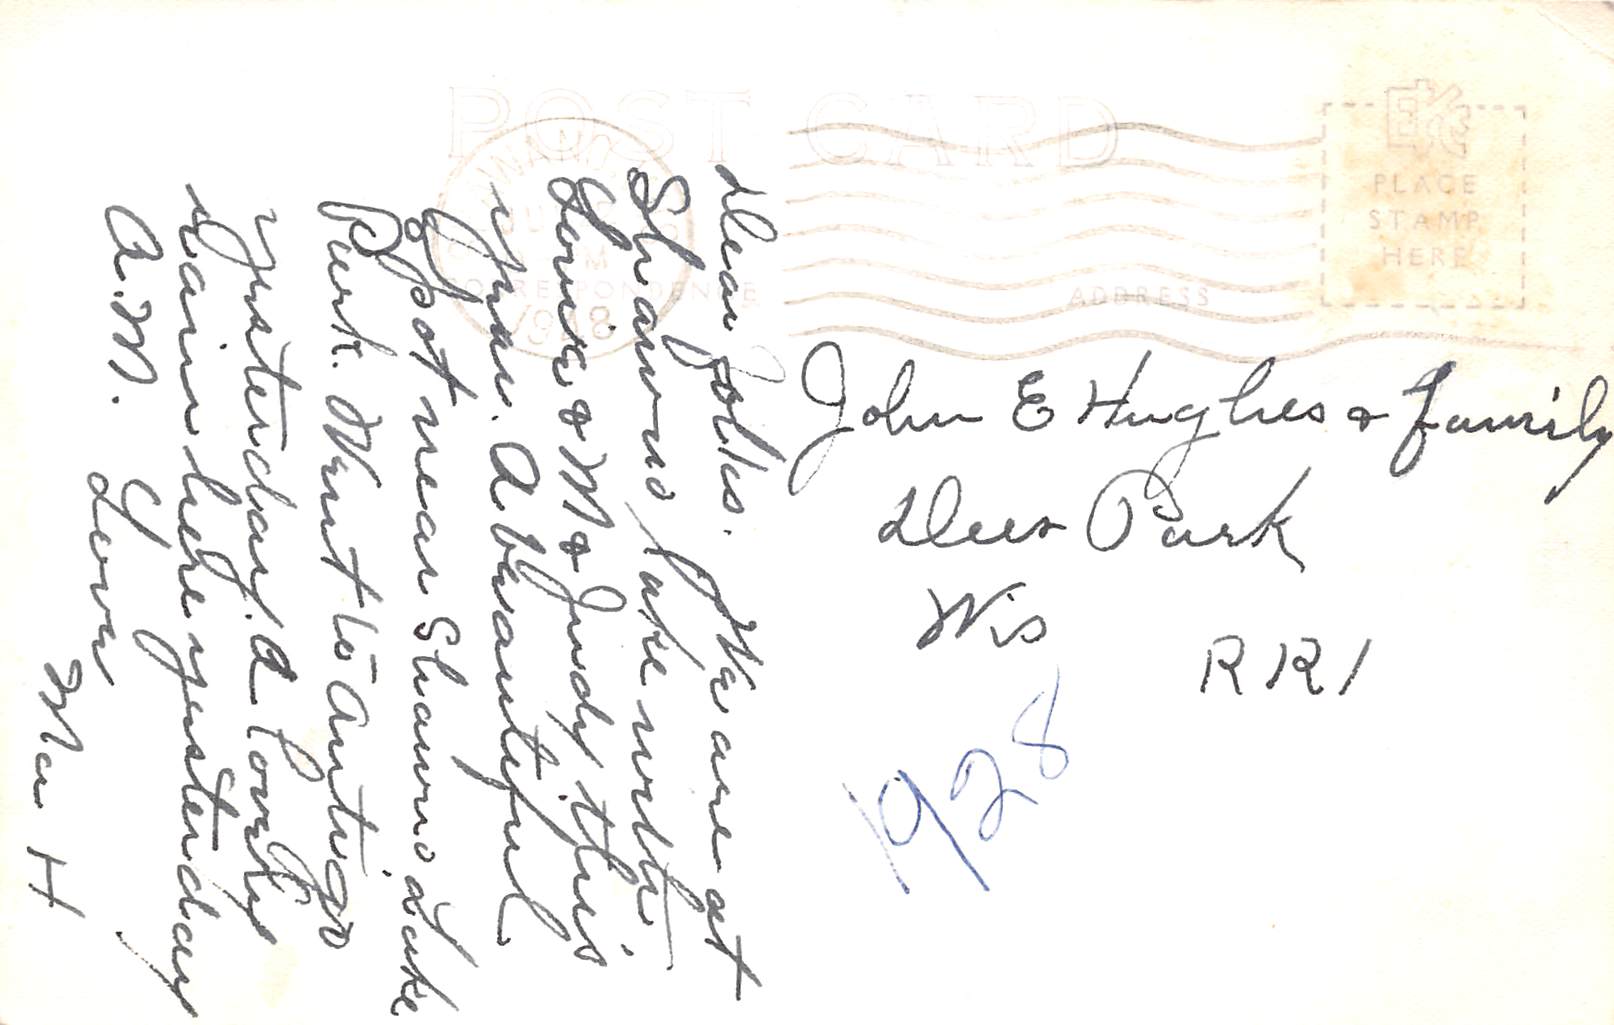 POST CARD
CORRESPONDENCE
ADDRESS
EKC
PLACE
STAMP
HERE
1948
Dear folks. We are at
Shawno Lake with
Louie & M & Judy this
A beautiful
Spot near Shawno Lake
Park. Went to Antigo
yesterday. A lovely
rain here yesterday
A.M.
Love
Mae H
John E Hughes & Family
Deer Park
Wis
RR1
1928